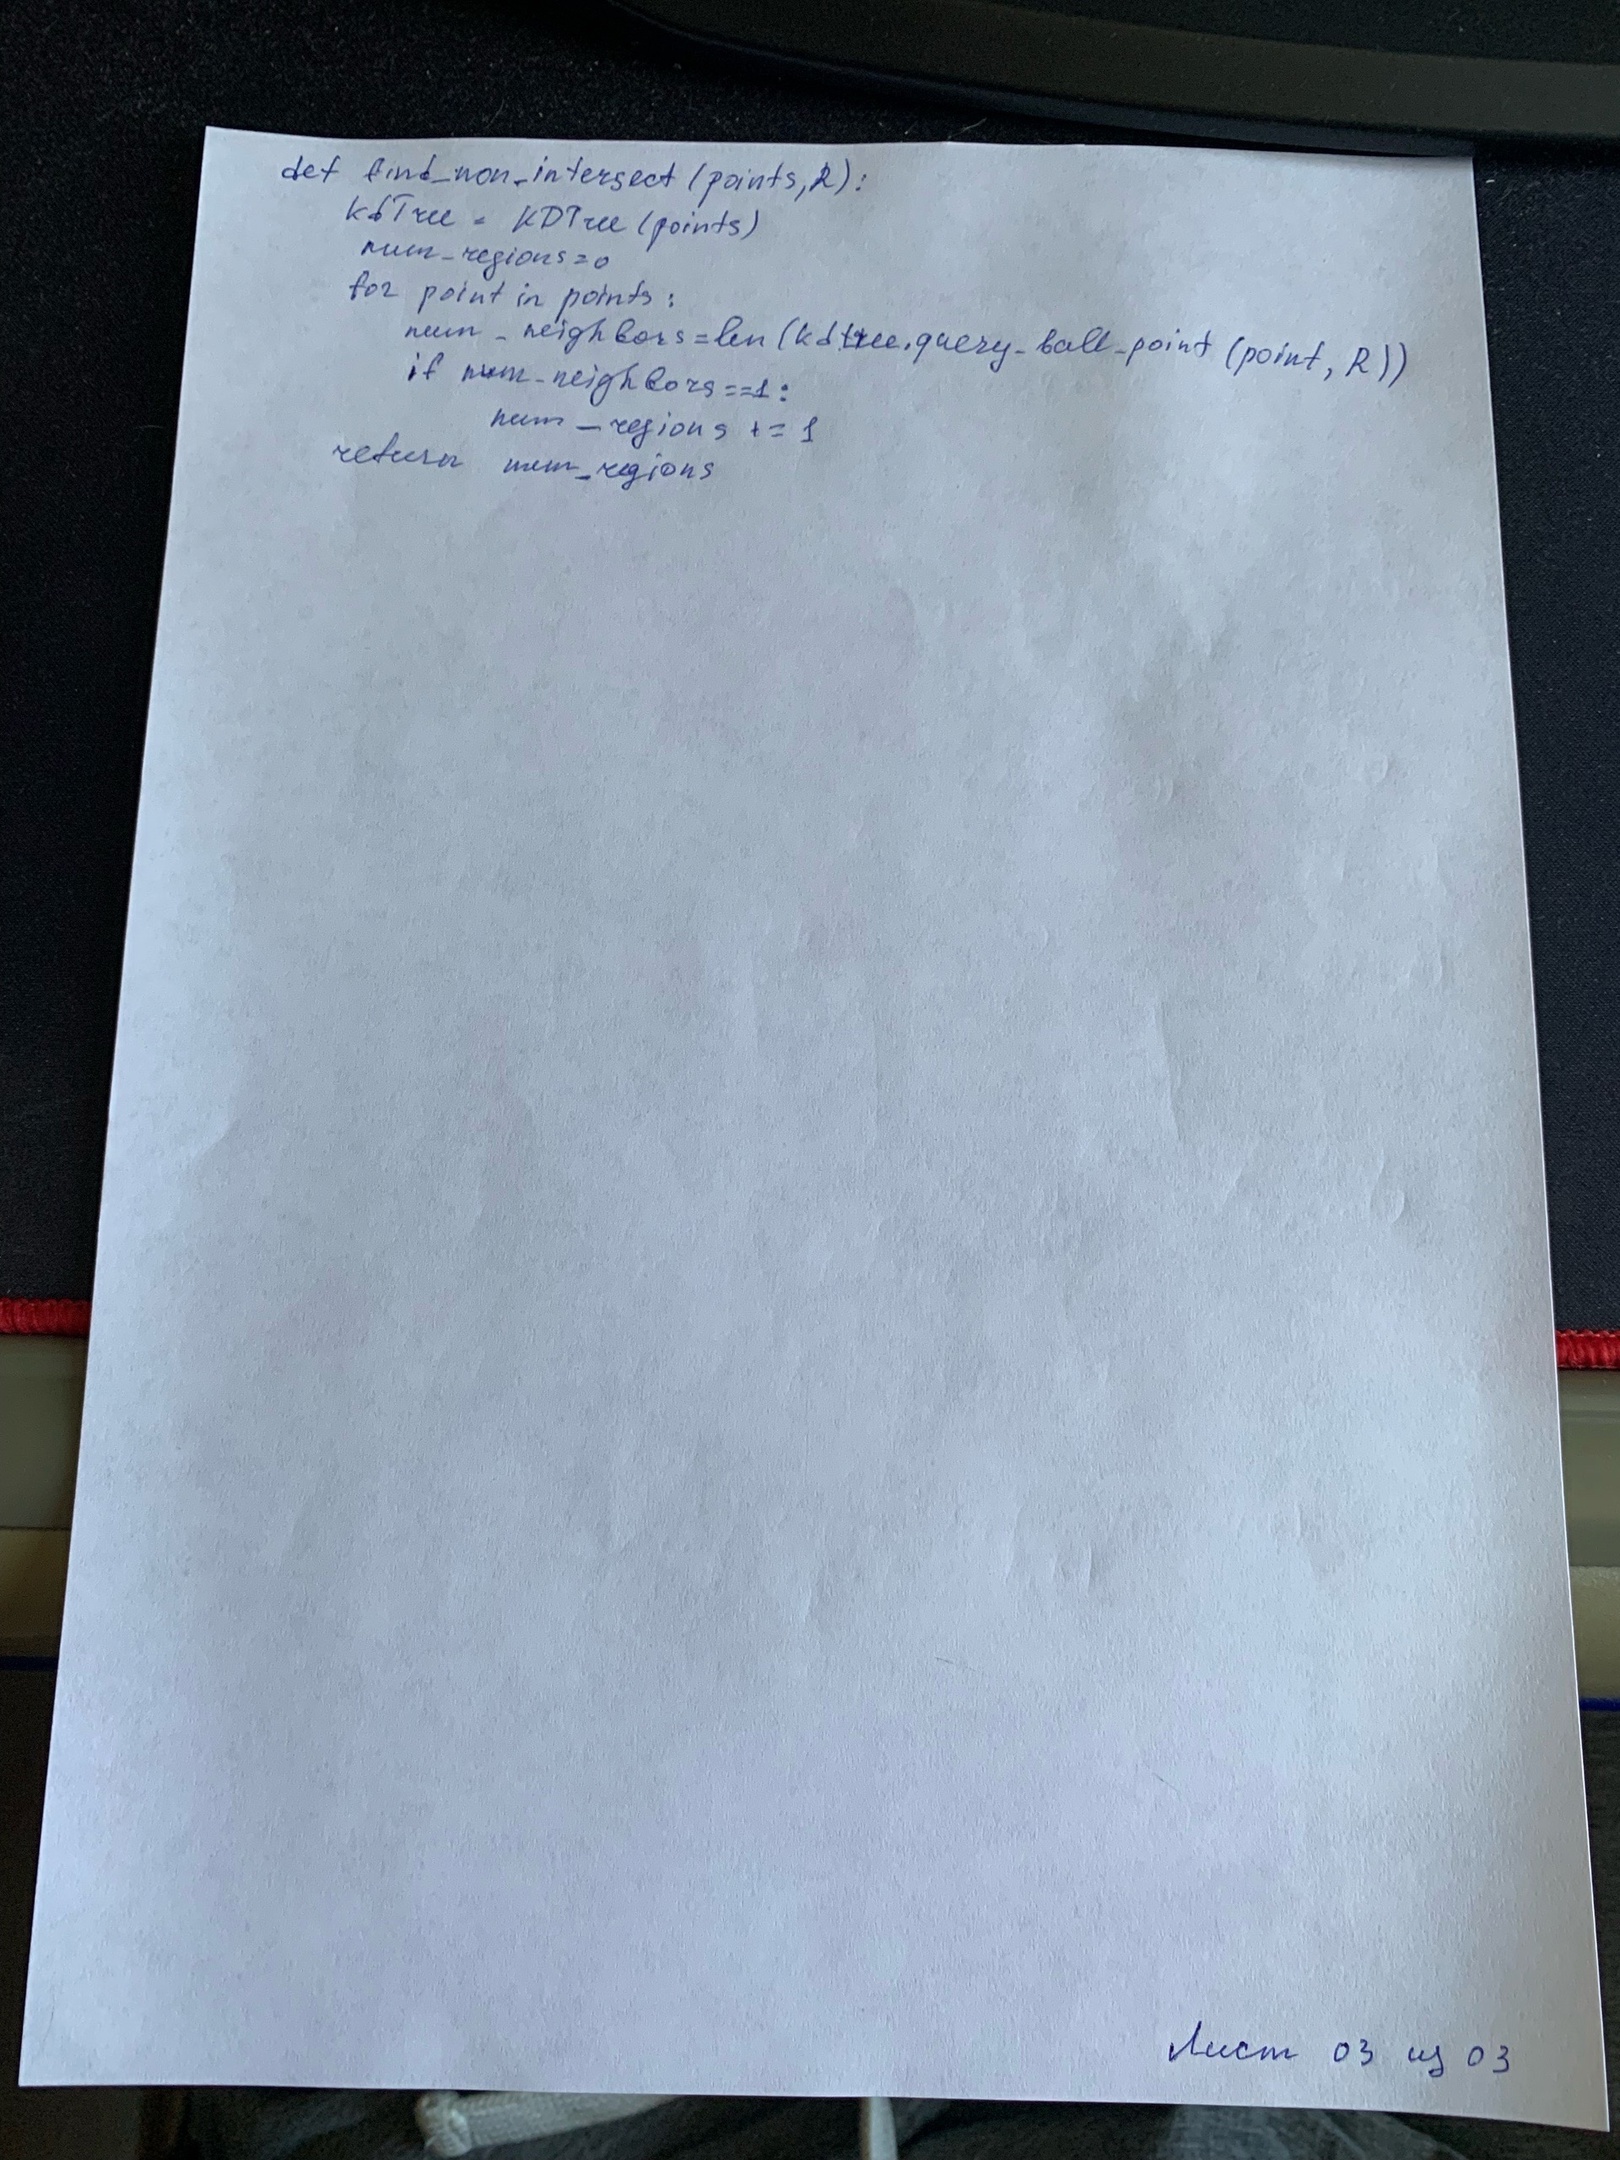 def find_non_intersect (points, R):
kdTree = KDTree (points)
num_regions=0
for point in points:
num_neighbors=len(kdtree.query_ball_point (point, R))
if num_neighbors==1:
num_regions += 1
return num_regions
Лист 03 из 03